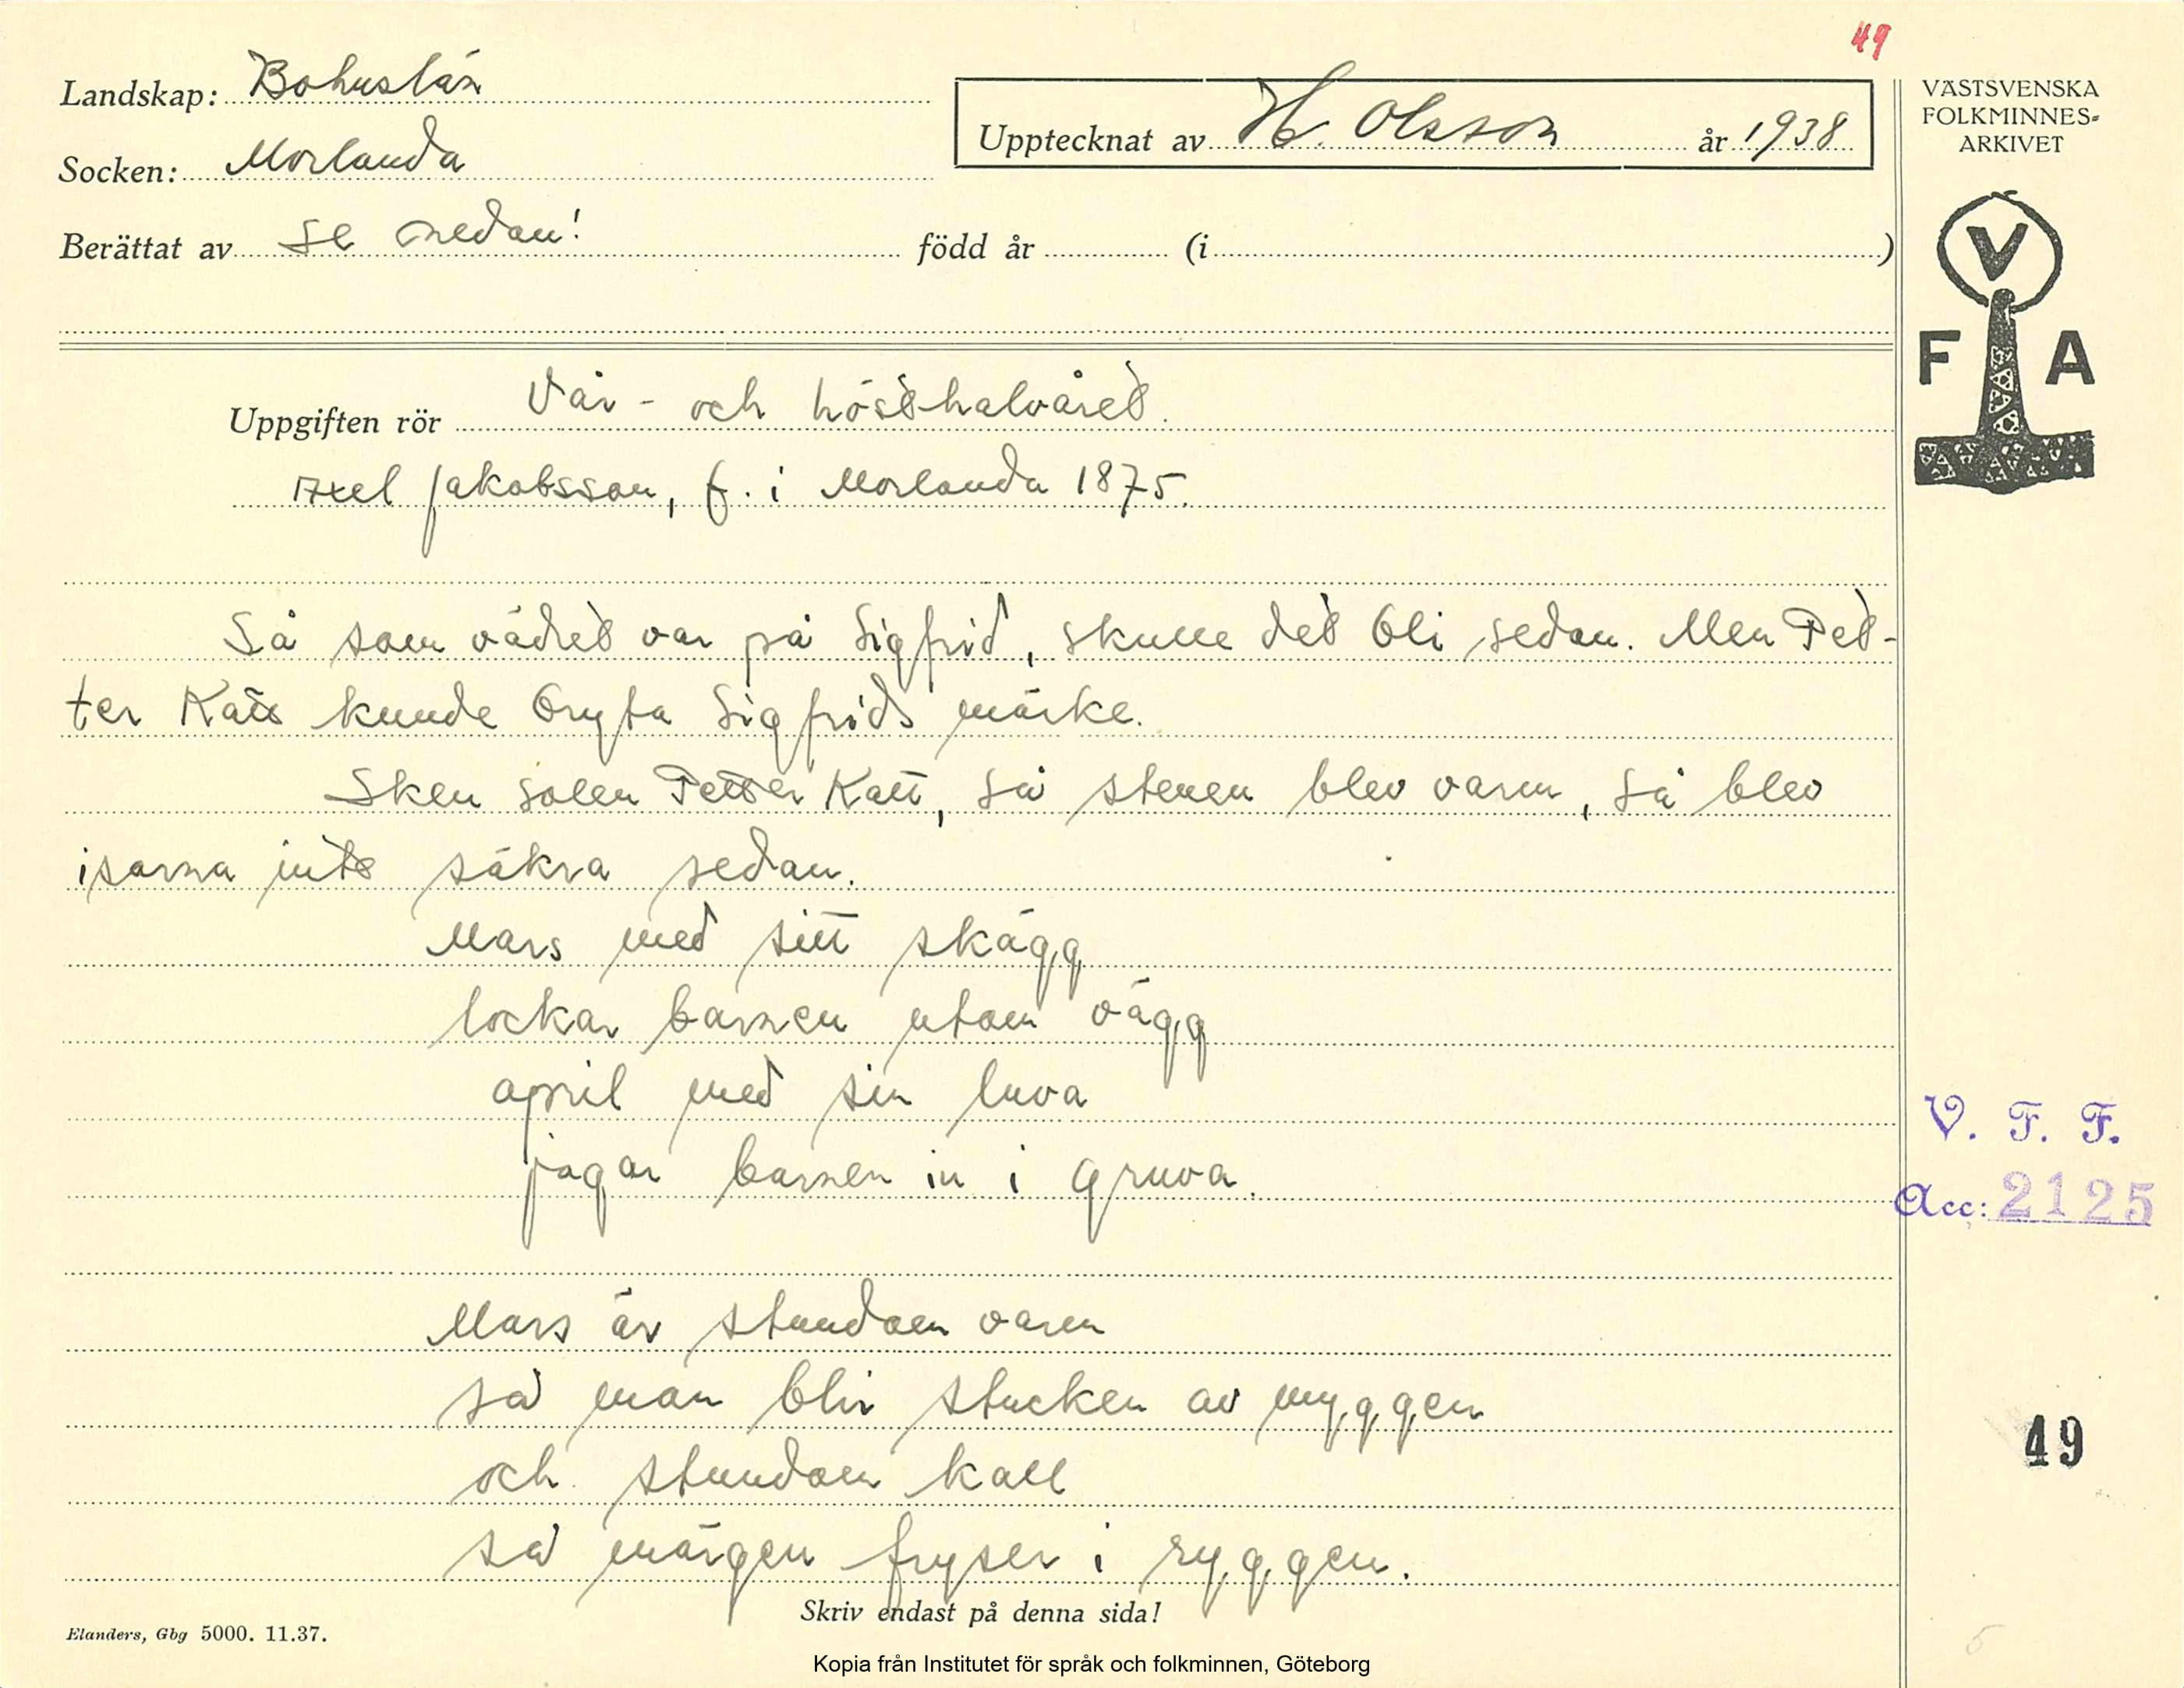 49
Landskap: Bohuslän
Socken: Morlanda
Berättat av se nedan! född år (i )
Upptecknat av H. Olsson år 1938
VÄSTSVENSKA
FOLKMINNES-
ARKIVET
V
F A
Uppgiften rör Vår- och hösthalvåret.
Axel Jakobsson, f. i Morlanda 1875.
Så som vädret var på Sigfrid, skulle det bli sedan. Men Pet-
ter Katt kunde bryta Sigfrids märke.
Sken solen Petter Katt, så stenen blev varm, så blev
isarna inte säkra sedan.
Mars med sitt skägg
lockar barnen utom vägg
april med sin luva
jagar barnen in i gruva.
V. F. F.
Acc: 2125
Mars är stundom varm
så man blir stucken av myggen
och stundom kall
så märgen fryser i ryggen.
49
Skriv endast på denna sida!
Elanders, Gbg 5000. 11.37.
5
Kopia från Institutet för språk och folkminnen, Göteborg